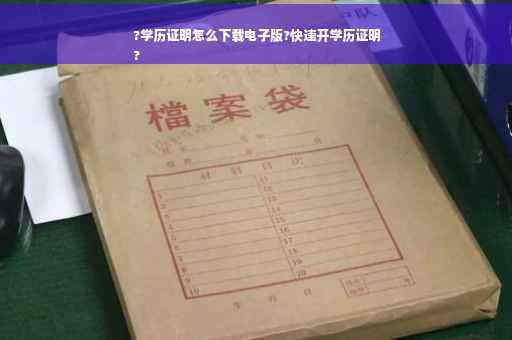 ?学历证明怎么下载电子版?快速开学历证明
?
檔案袋
材料目次
1 11
2 12
3 13
4 14
5 15
6 16
7 17
8 18
9 19
10 20
年 月 日